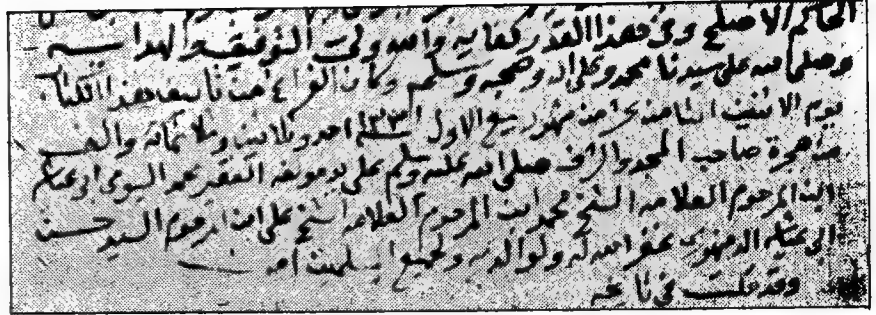 الحاكم الاصلح وفى هذا القدر كفايه والله ولى التوفيق والهدايه
وصلى الله على سيدنا محمد وعلى اله وصحبه وسلم وكان الفراغ من تاليف هذا الكتاب
يوم الاثنين الثامن عشر من شهر ربيع الاول ١٣٣١ احد وثلاثين وثلاثمائة والف
من هجرة صاحب المجد والشرف صلى الله عليه وسلم على يد مولفه الفقير محمد البيومى ابو عياشه
ابن المرحوم العلامه الشيخ محمد ابن المرحوم العلامه الشيخ على ابن المرحوم السيد حسن
ابى عياشه الدمنهورى غفر الله له ولوالديه ولجميع المسلمين امين
وقد قلت فى